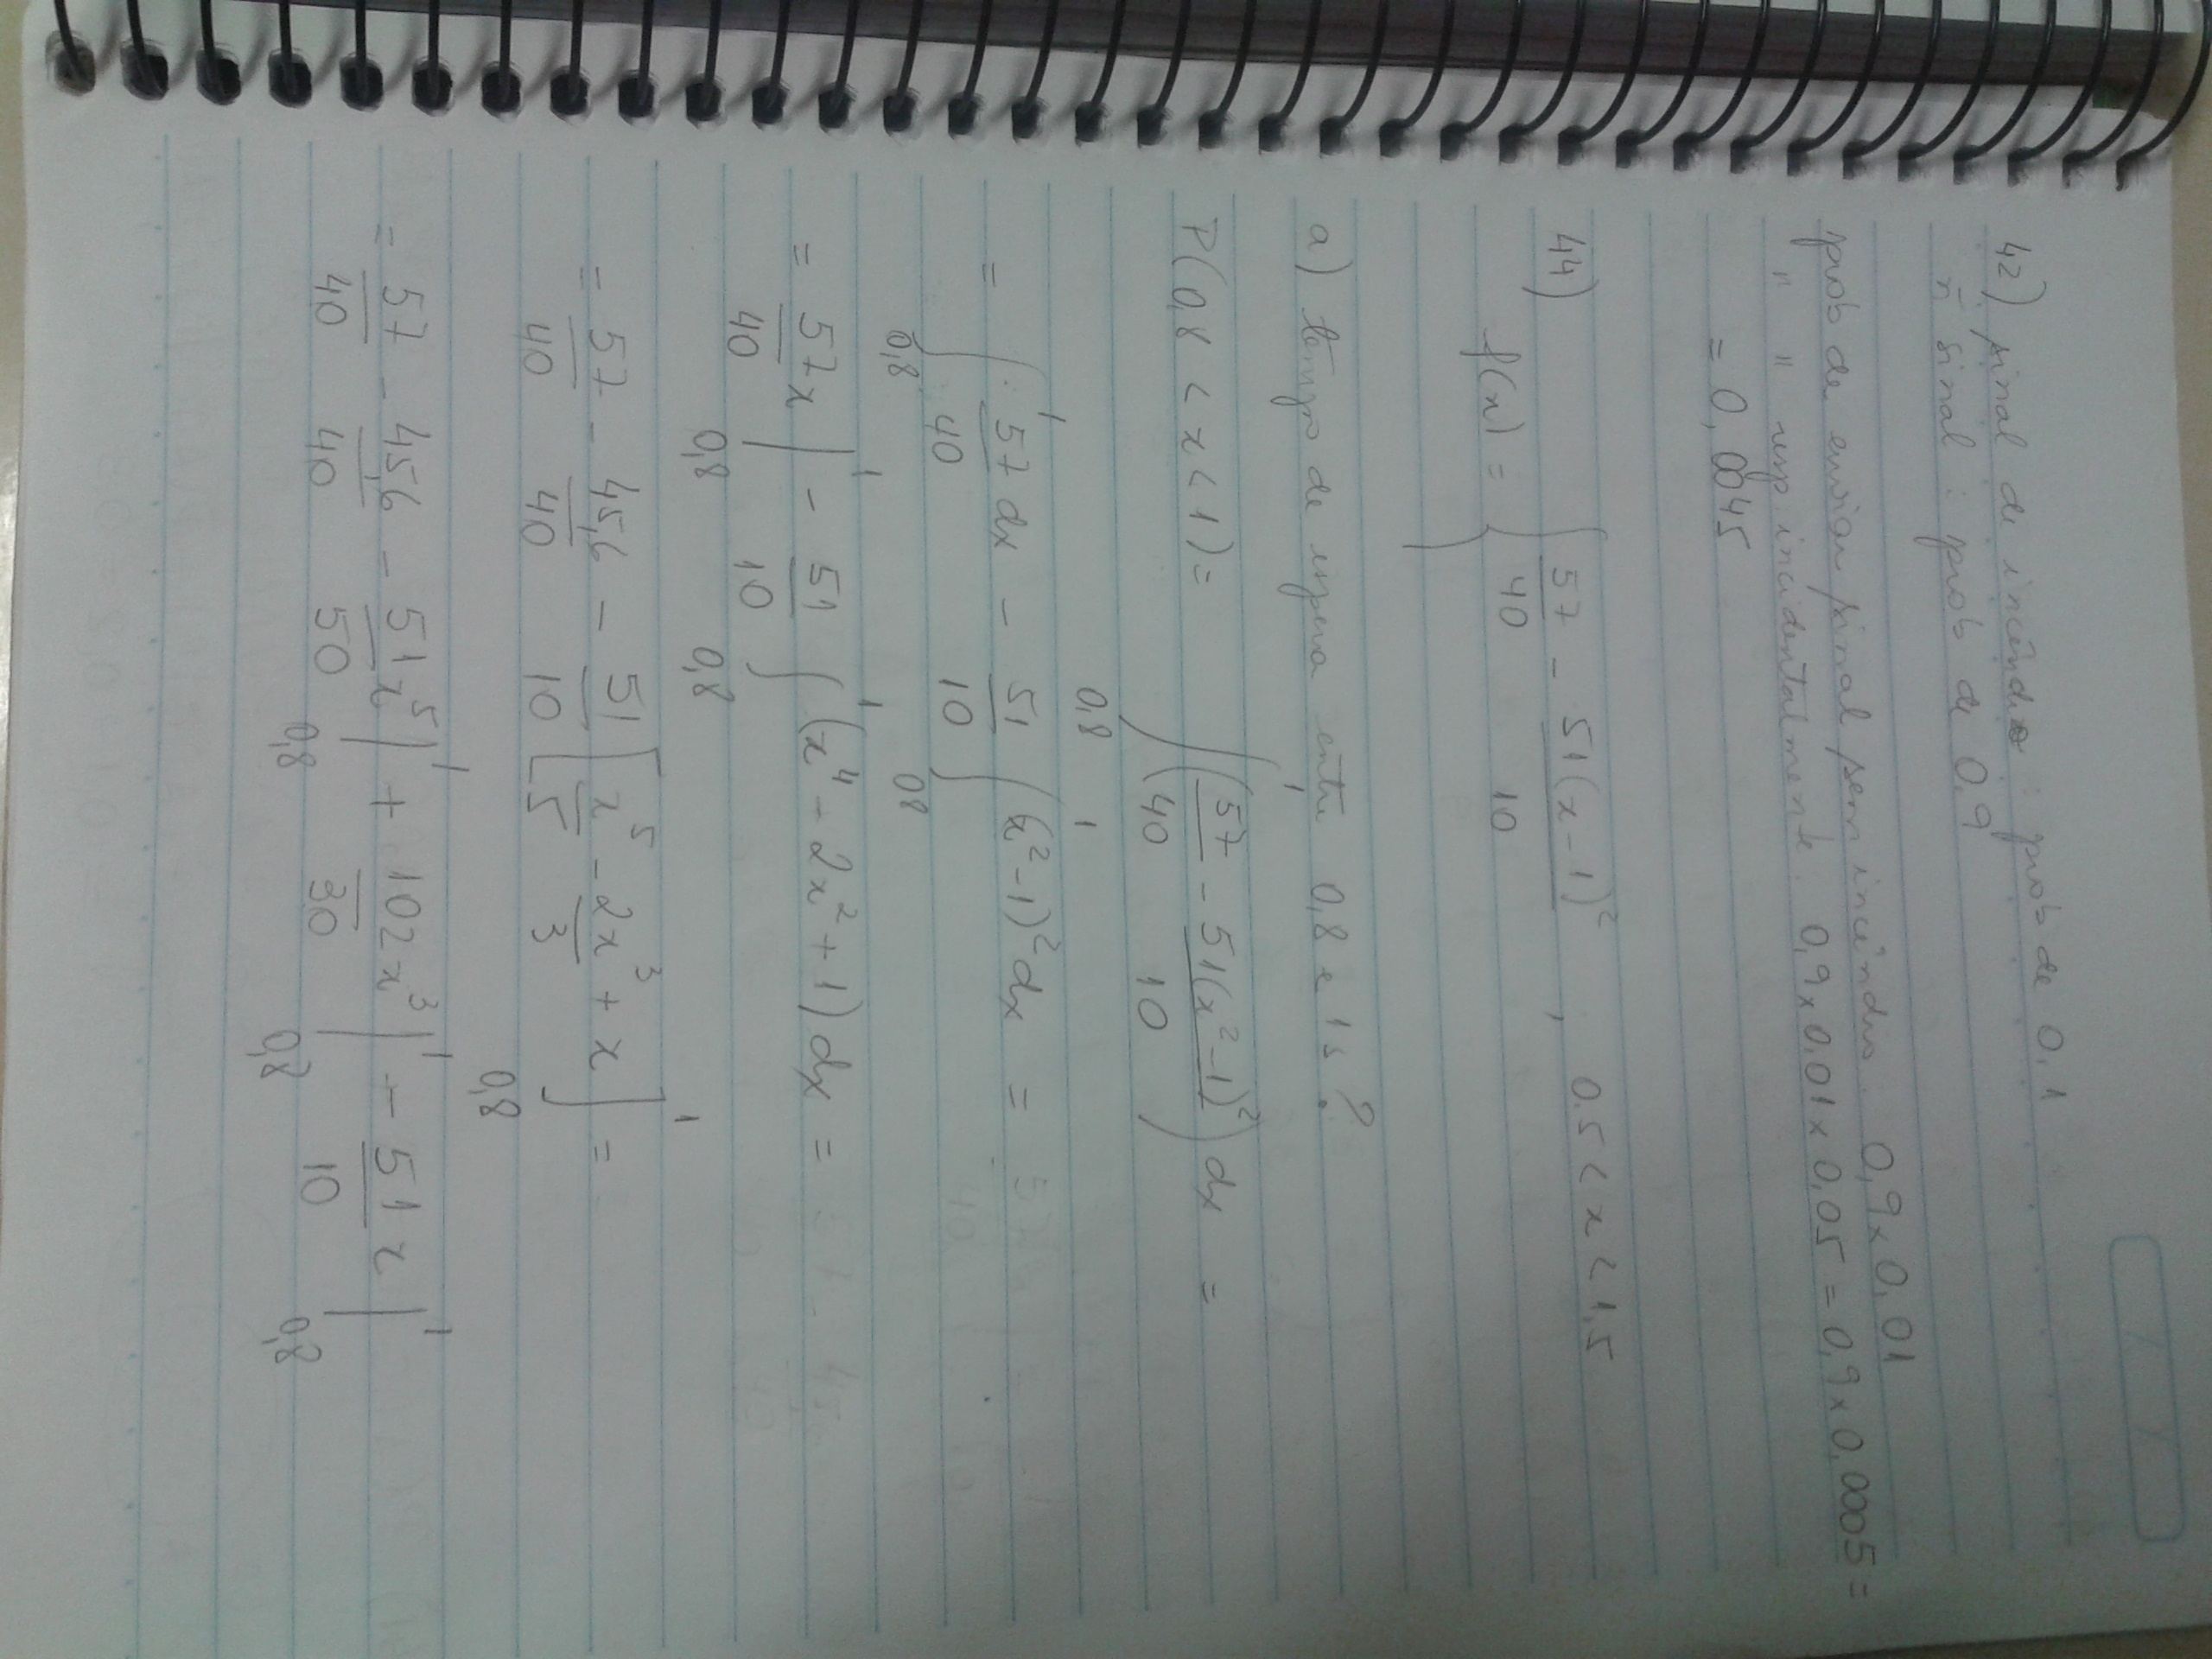 42) sinal de incêndio : prob de 0,1
ñ sinal : prob de 0,9
prob de enviar sinal sem incêndio. 0,9 x 0,01
" " resp incidentalmente. 0,9 x 0,01 x 0,05 = 0,9 x 0,0005 =
= 0,0045
44) f(x) = { 57/40 - 51(x-1)²/10 , 0.5 < x < 1,5
a) tempo de espera entre 0,8 e 1s?
P(0,8 < x < 1) = ∫_{0,8}^{1} (57/40 - 51(x²-1)²/10) dx =
= ∫_{0,8}^{1} 57/40 dx - 51/10 ∫_{08}^{1} (x²-1)² dx =
= 57/40 x |_{0,8}^{1} - 51/10 ∫_{0,8}^{1} (x⁴ - 2x² + 1) dx =
= 57/40 - 45,6/40 - 51/10 [x⁵/5 - 2x³/3 + x]_{0,8}^{1} =
= 57/40 - 45,6/40 - 51/50 x⁵ |_{0,8}^{1} + 102/30 x³ |_{0,8}^{1} - 51/10 x |_{0,8}^{1}